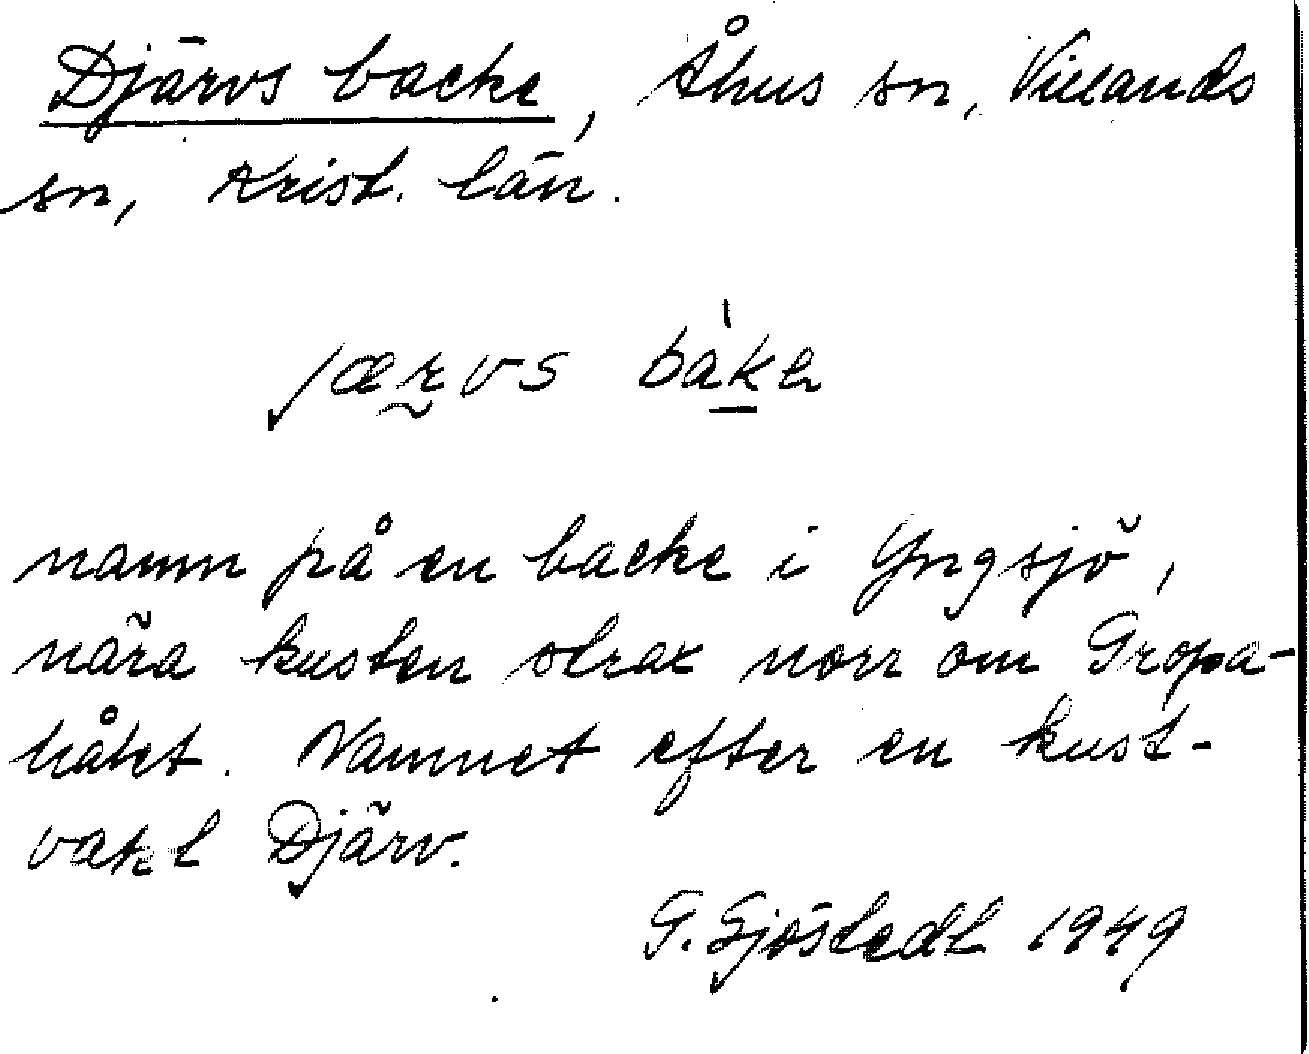 Djärvs backe, Åhus sn, Villands
sn, Krist. län.
jærvs bàken
namn på en backe i Yngsjö,
nära kusten strax norr om Gropa-
hålet. Namnet efter en kust-
vakt Djärv.
G. Sjöstedt 1949